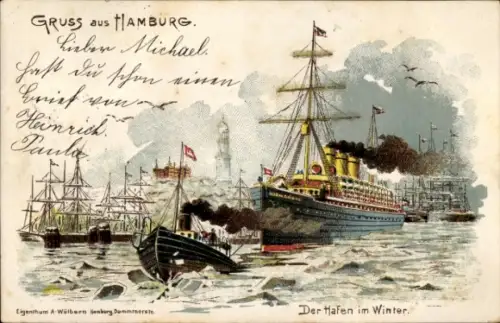 GRUSS AUS HAMBURG.
Lieber Michael.
Hast du schon einen
Brief von
Heinrich.
Paula.
Eigenthum A. Wölbern Hamburg
Der Hafen im Winter.